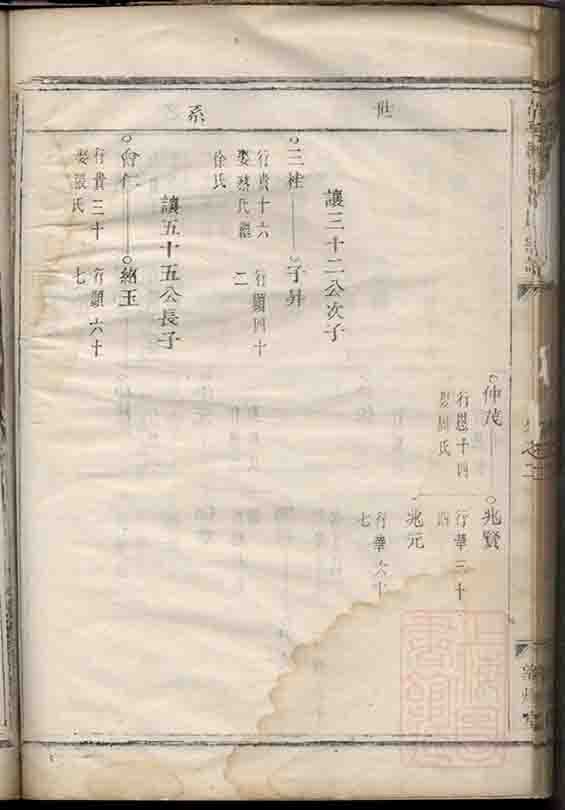 世系
仲茂
行恩十四
娶周氏
兆賢
行華三十
四
兆元
行華六十
七
讓三十二公次子
三桂
行貴十六
娶蔡氏繼
徐氏
子昇
行顯四十
二
讓五十五公長子
行貴三十
娶張氏
納玉
行顯六十
七